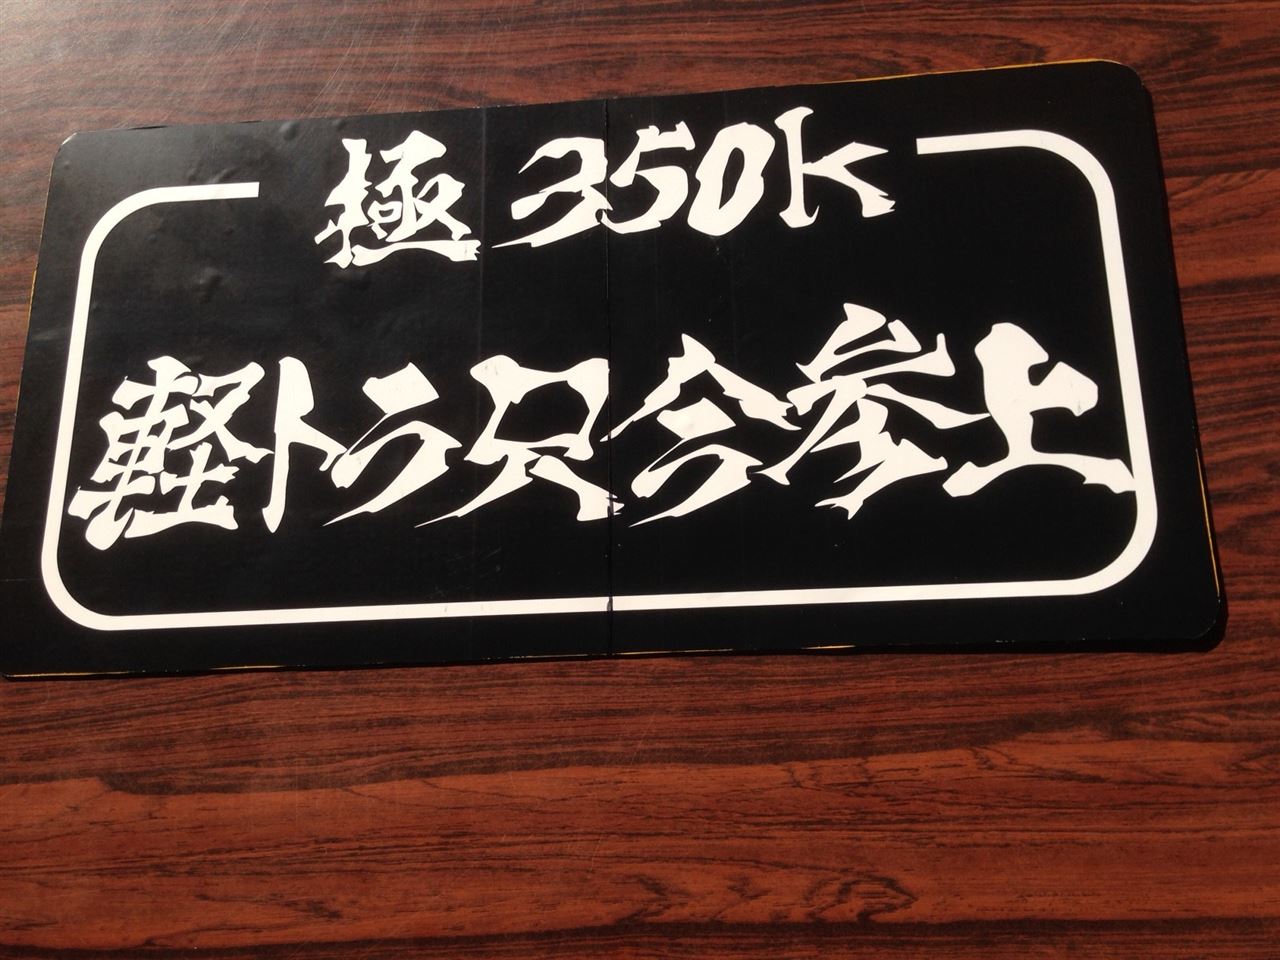 極 350k
軽トラ只今参上